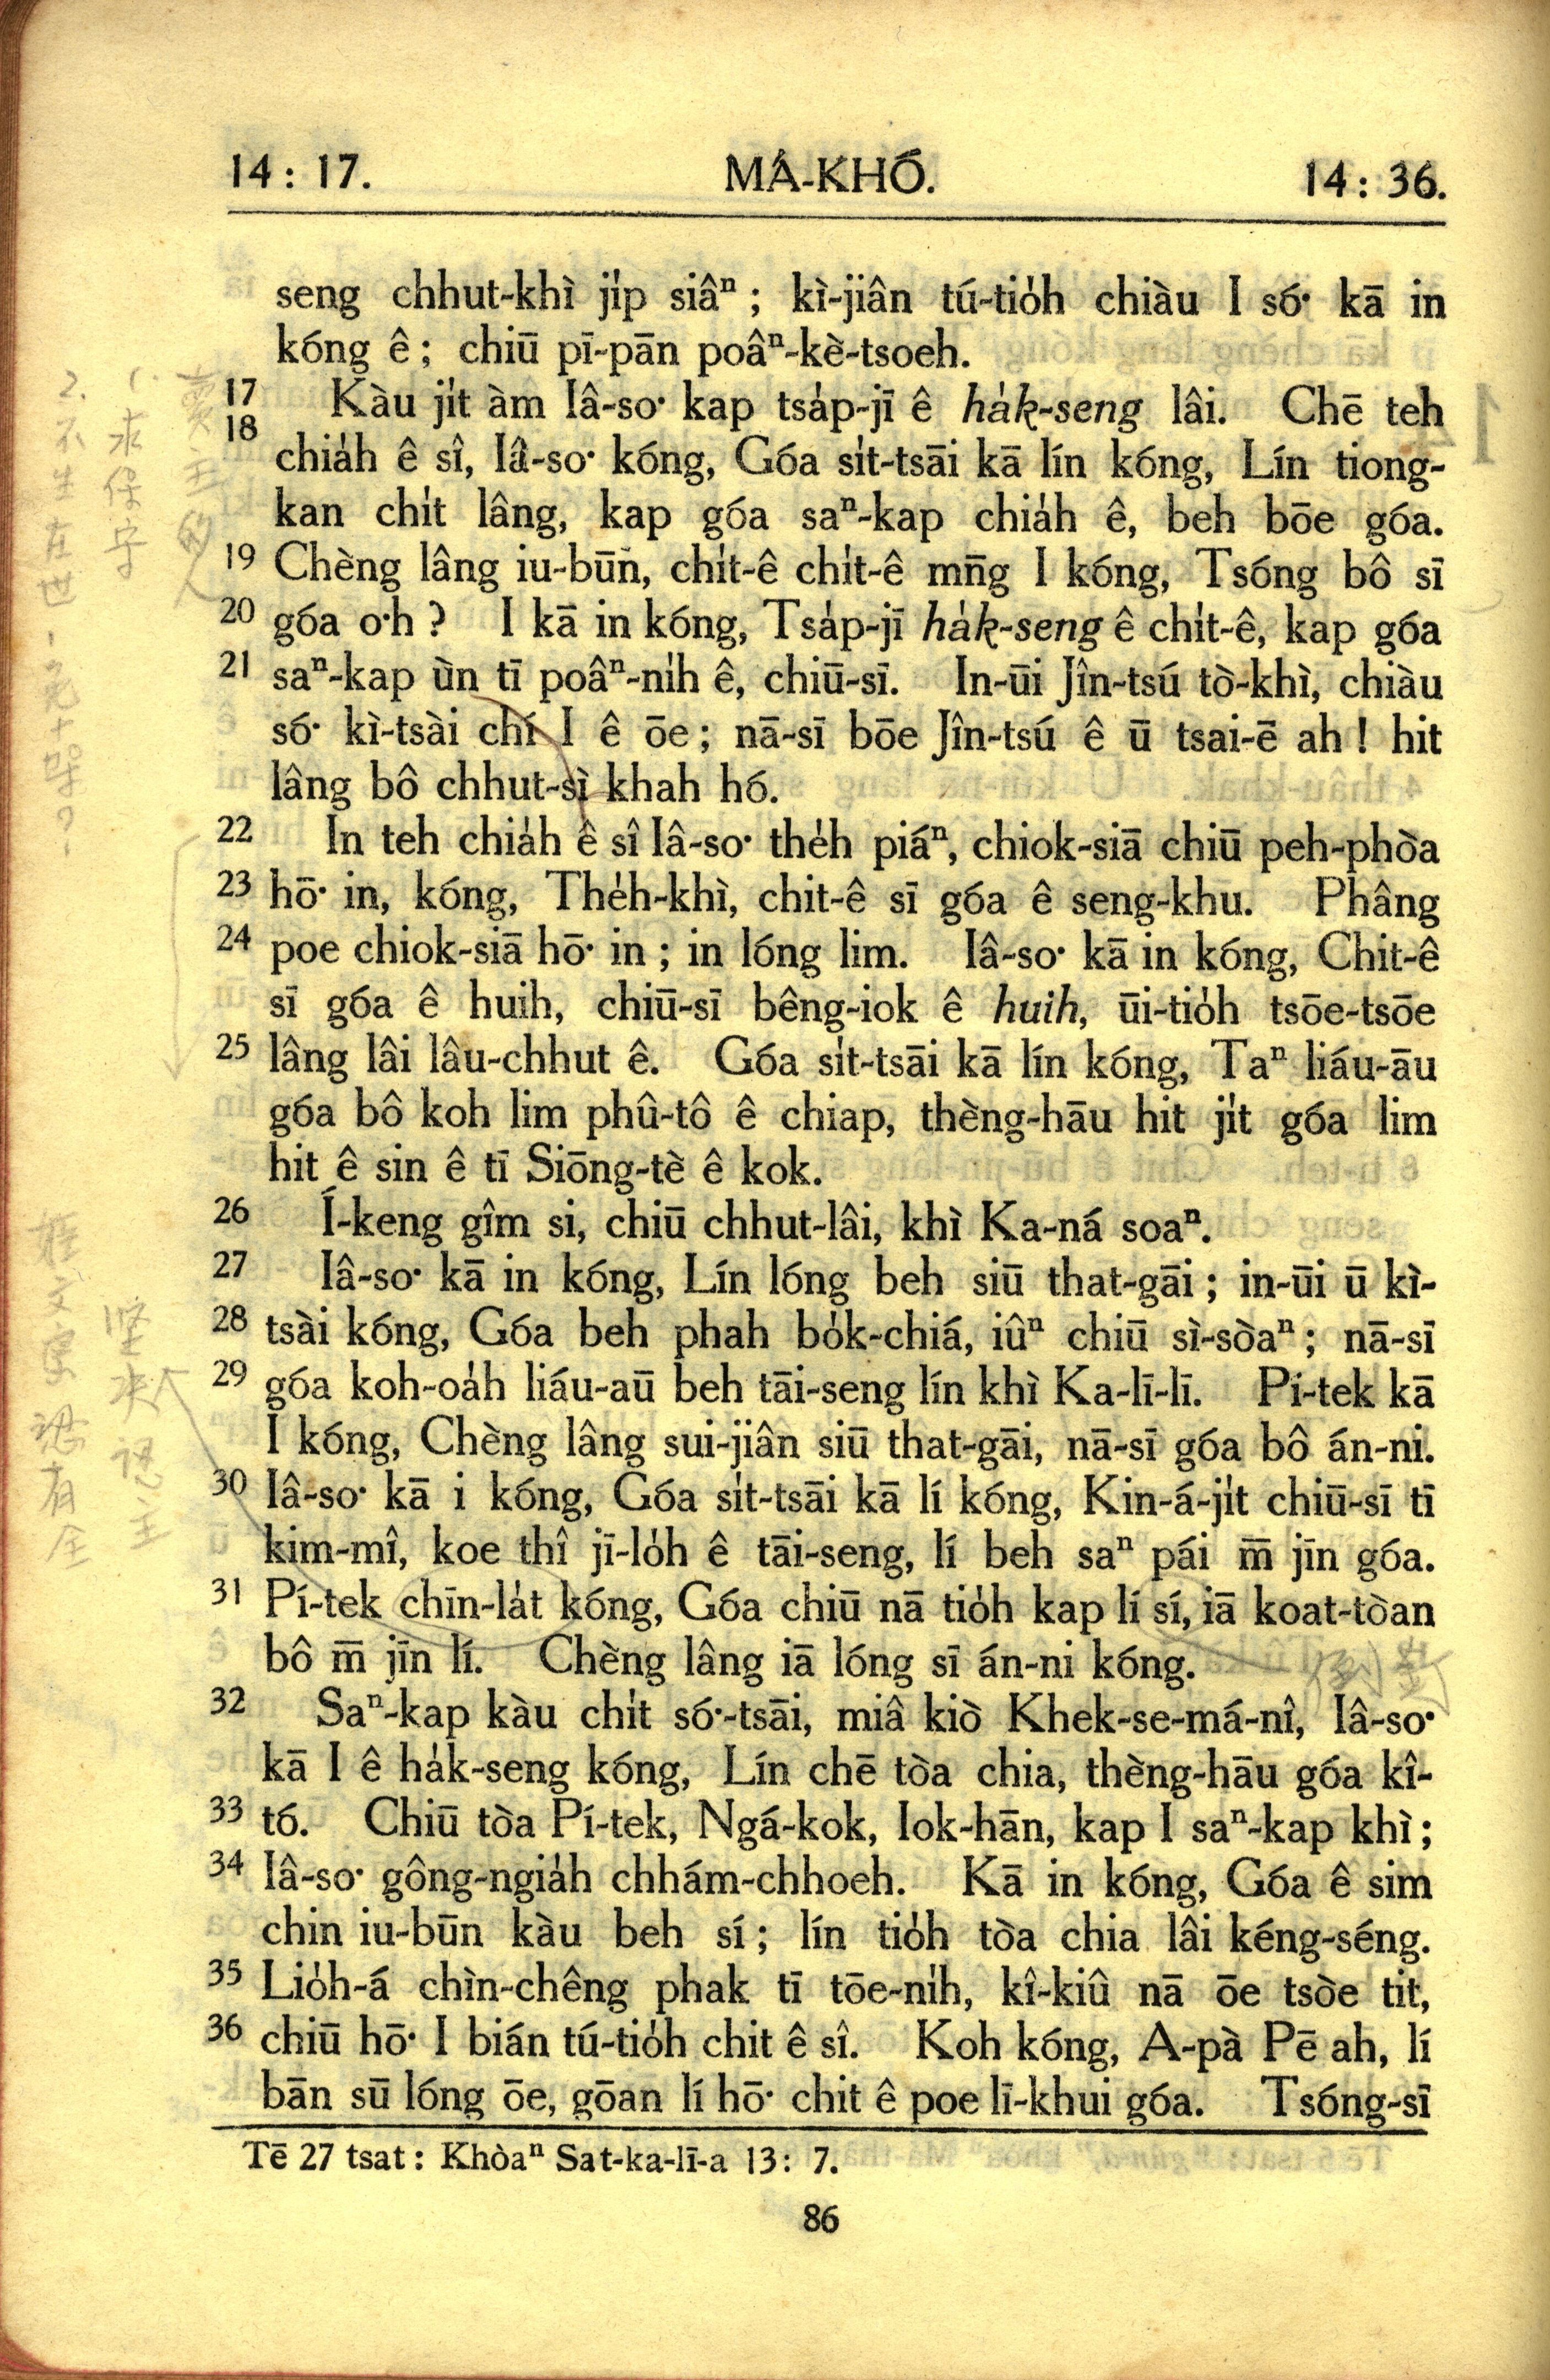 14: 17.
MÁ-KHÓ.
14: 36.
seng chhut-khì ji̍p siâⁿ; kì-jiân tú-tio̍h chiàu I só͘ kā in
kóng ê; chiū pī-pān poâⁿ-kè-tsoeh.
17 Kàu ji̍t àm Iâ-so͘ kap tsa̍p-jī ê ha̍k-seng lâi. Chē teh
18 chia̍h ê sî, Iâ-so͘ kóng, Góa si̍t-tsāi kā lín kóng, Lín tiong-
kan chi̍t lâng, kap góa saⁿ-kap chia̍h ê, beh bōe góa.
19 Chèng lâng iu-būn, chi̍t-ê chi̍t-ê mn̄g I kóng, Tsóng bô sī
20 góa o͘h? I kā in kóng, Tsa̍p-jī ha̍k-seng ê chi̍t-ê, kap góa
21 saⁿ-kap ùn tī poâⁿ-ni̍h ê, chiū-sī. In-ūi Jîn-tsú tò-khì, chiàu
só͘ kì-tsài chí I ê ōe; nā-sī bōe Jîn-tsú ê ū tsai-ē ah! hit
lâng bô chhut-sì khah hó.
22 In teh chia̍h ê sî Iâ-so͘ the̍h piáⁿ, chiok-siā chiū peh-phòa
23 hō͘ in, kóng, The̍h-khì, chit-ê sī góa ê seng-khu. Phâng
24 poe chiok-siā hō͘ in; in lóng lim. Iâ-so͘ kā in kóng, Chit-ê
sī góa ê huih, chiū-sī bêng-iok ê huih, ūi-tio̍h tsōe-tsōe
25 lâng lâi lâu-chhut ê. Góa si̍t-tsāi kā lín kóng, Taⁿ liáu-āu
góa bô koh lim phû-tô ê chiap, thèng-hāu hit ji̍t góa lim
hit ê sin ê tī Siōng-tè ê kok.
26 Í-keng gîm si, chiū chhut-lâi, khì Ka-ná soaⁿ.
27 Iâ-so͘ kā in kóng, Lín lóng beh siū that-gāi; in-ūi ū kì-
28 tsài kóng, Góa beh phah bo̍k-chiá, iûⁿ chiū sì-sòaⁿ; nā-sī
29 góa koh-oa̍h liáu-aū beh tāi-seng lín khì Ka-lī-lī. Pí-tek kā
I kóng, Chèng lâng sui-jiân siū that-gāi, nā-sī góa bô án-ni.
30 Iâ-so͘ kā i kóng, Góa si̍t-tsāi kā lí kóng, Kin-á-ji̍t chiū-sī tī
kim-mî, koe thî jī-lo̍h ê tāi-seng, lí beh saⁿ pái m̄ jīn góa.
31 Pí-tek chīn-la̍t kóng, Góa chiū nā tio̍h kap lí sí, iā koat-tòan
bô m̄ jīn lí. Chèng lâng iā lóng sī án-ni kóng.
32 Saⁿ-kap kàu chi̍t só͘-tsāi, miâ kiò Khek-se-má-nî, Iâ-so͘
kā I ê ha̍k-seng kóng, Lín chē tòa chia, thèng-hāu góa kî-
33 tó. Chiū tòa Pí-tek, Ngá-kok, Iok-hān, kap I saⁿ-kap khì;
34 Iâ-so͘ gông-ngia̍h chhám-chhoeh. Kā in kóng, Góa ê sim
chin iu-būn kàu beh sí; lín tio̍h tòa chia lâi kéng-séng.
35 Lio̍h-á chìn-chêng phak tī tōe-ni̍h, kî-kiû nā ōe tsòe tit,
36 chiū hō͘ I bián tú-tio̍h chit ê sî. Koh kóng, A-pà Pē ah, lí
bān sū lóng ōe, gōan lí hō͘ chit ê poe lī-khui góa. Tsóng-sī
Tē 27 tsat: Khòaⁿ Sat-ka-lī-a 13: 7.
86